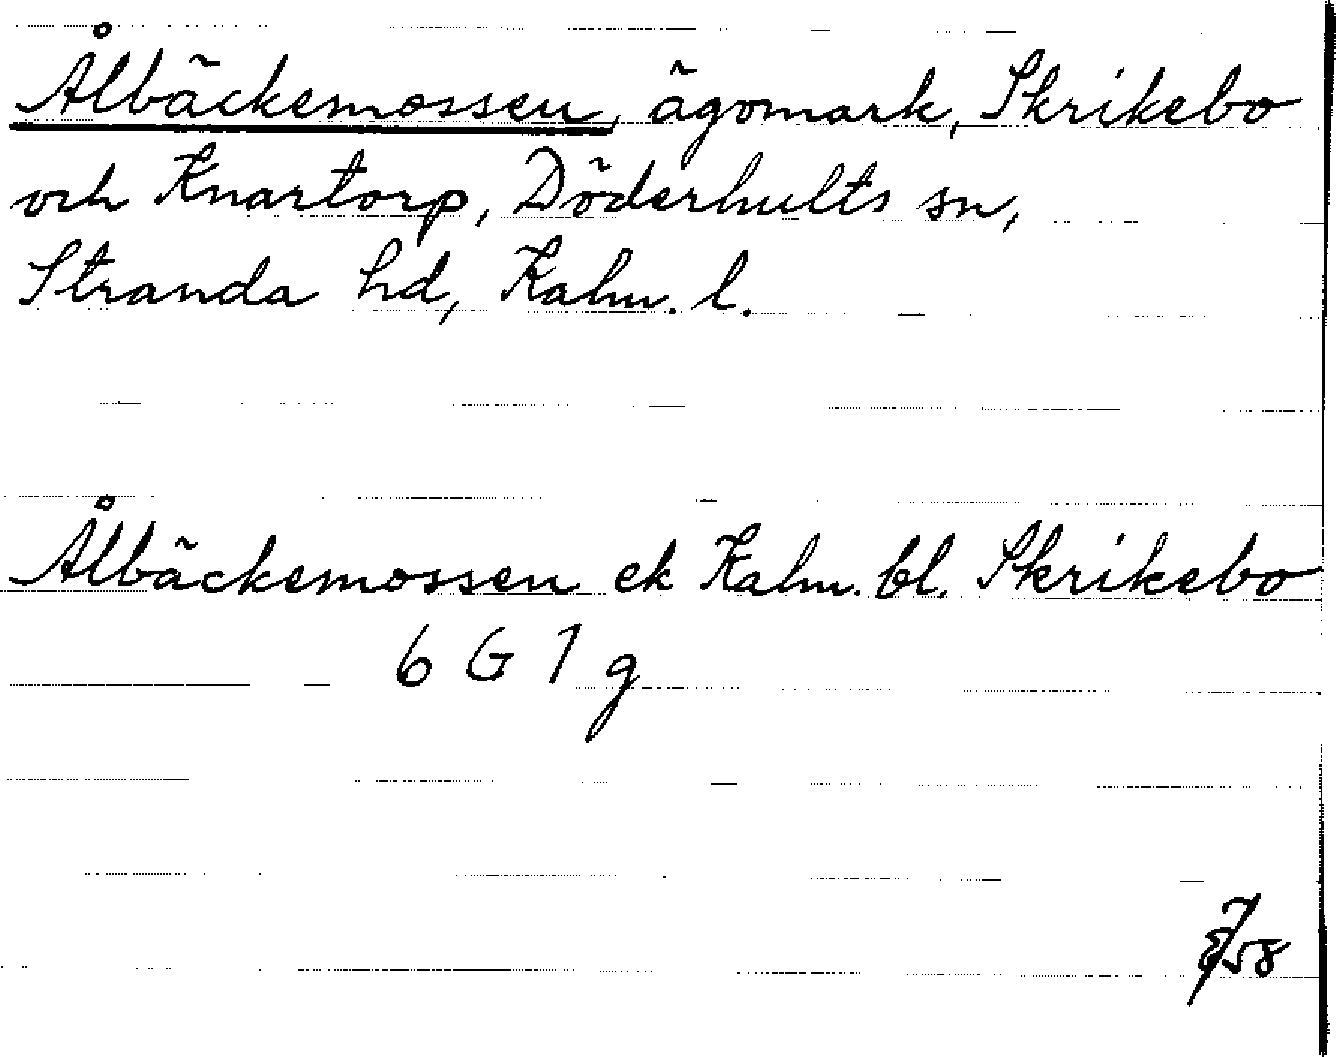 Ålbäckemossen, ägomark, Skrikebo
och Knartorp, Döderhults sn,
Stranda hd, Kalm. l.
Ålbäckemossen ek Kalm. bl. Skrikebo
6 G 1 g